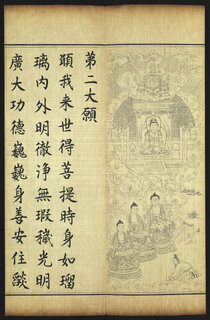 第二大願
願我来世得菩提時身如瑠
璃内外明徹淨無瑕穢光明
廣大功德巍巍身善安住燄